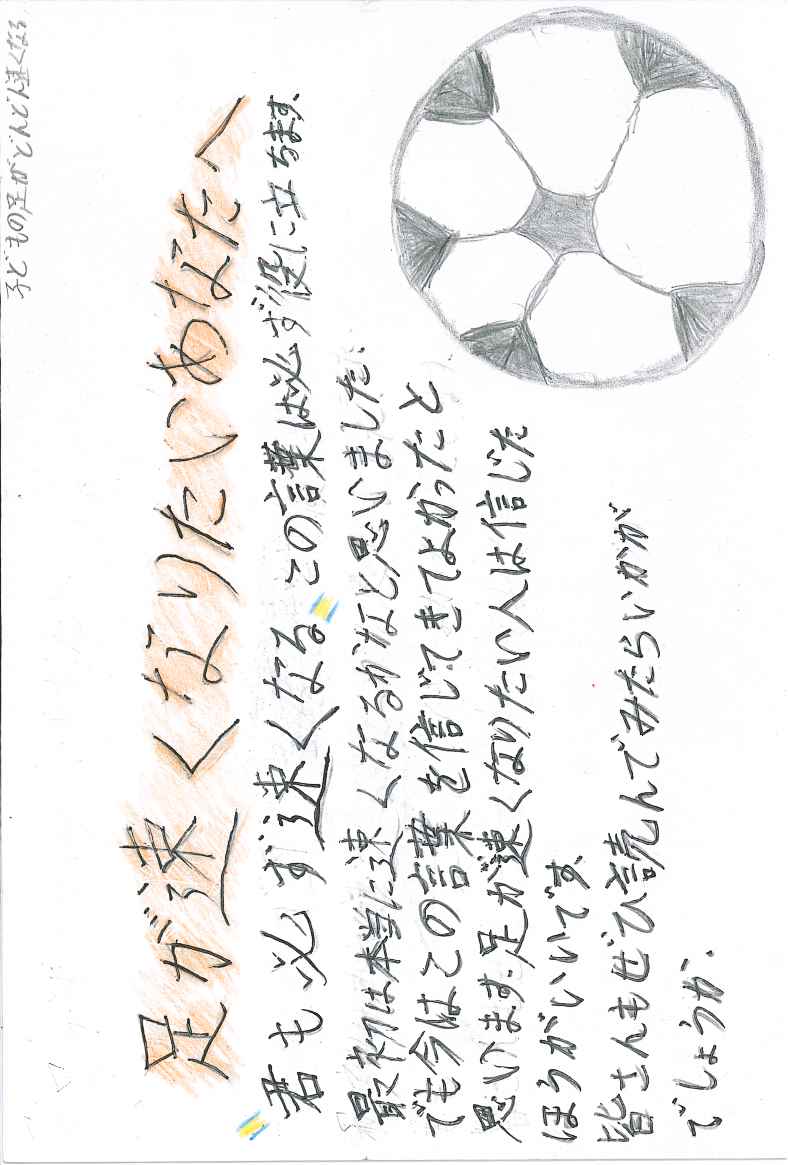 子どもの足がどんどん速くなる
足が速くなりたいあなたへ
君も必ず速くなる この言葉は必ず役に立ちます。
最初は本当に速くなるかなと思いました。
でも今はこの言葉を信じてきてよかったと
思います。足が速くなりたい人は信じた
ほうがいいです。
皆さんもぜひ読んでみたらいかが
でしょうか。